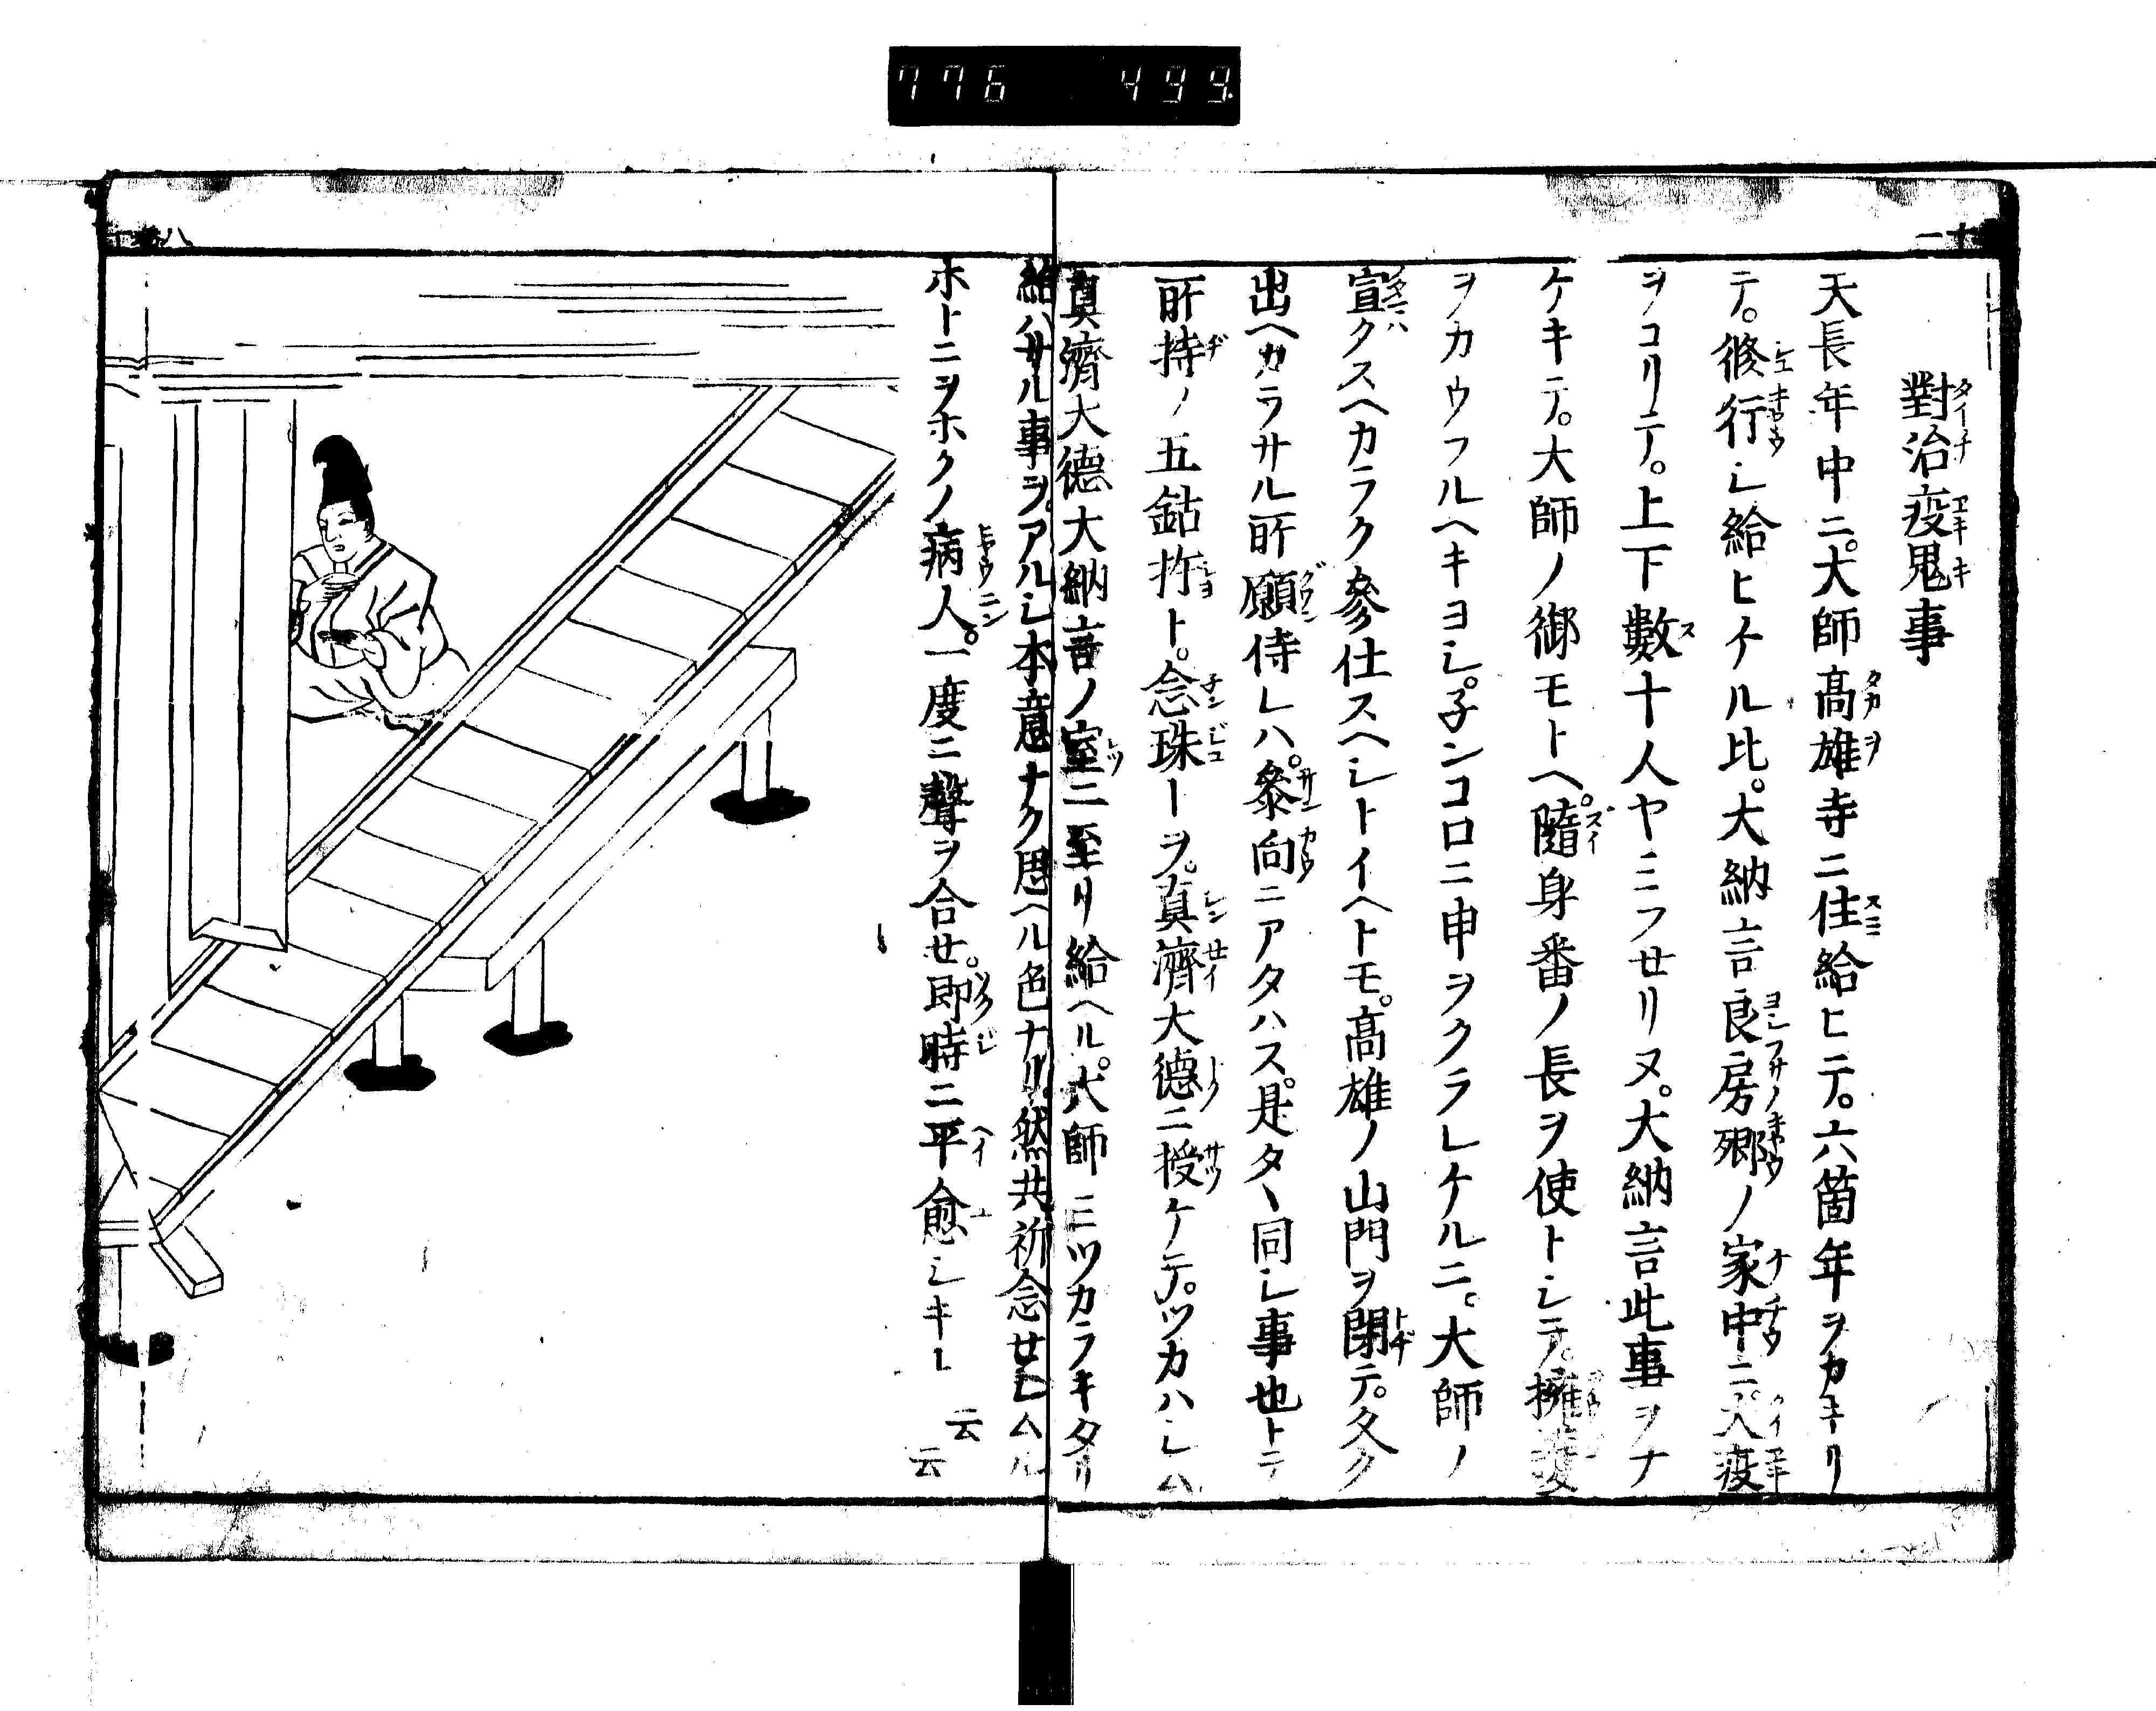 776 499.
十一
對治疫鬼事
天長年中ニ。大師高雄寺ニ住給ヒテ。六箇年ヲカキリ
テ。修行シ給ヒケル比。大納言良房卿ノ家中ニ。大疫
ヲコリテ。上下數十人ヤミフセリヌ。大納言此事ヲナ
ケキテ。大師ノ御モトヘ。隨身番ノ長ヲ使トシテ。擁護
ヲカウフルヘキヨシ。子ンコロニ申ヲクラレケルニ。大師ノ
宣クスヘカラク參仕スヘシトイヘトモ。高雄ノ山門ヲ閉テ。久ク
出ヘカラサル所願侍レハ。參向ニアタハス。是タヽ同シ事也トテ
所持ノ五鈷杵ト。念珠ーヲ。真濟大德ニ授ケテ。ツカハシハ
真濟大德大納言ノ室ニ至リ給ヘル。大師ミツカラキタリ
給ハサル事ヲ。アルシ本意ナク思ヘル色ナリ。然共祈念セシムル
ホトニヲホクノ病人。一度ニ聲ヲ合セ。即時ニ平愈シキト云云
八